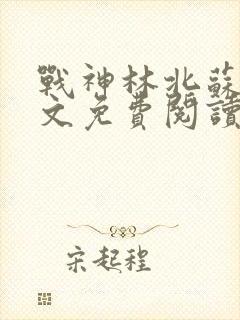 戰神林北蘇
文免費閱讀
宋起程